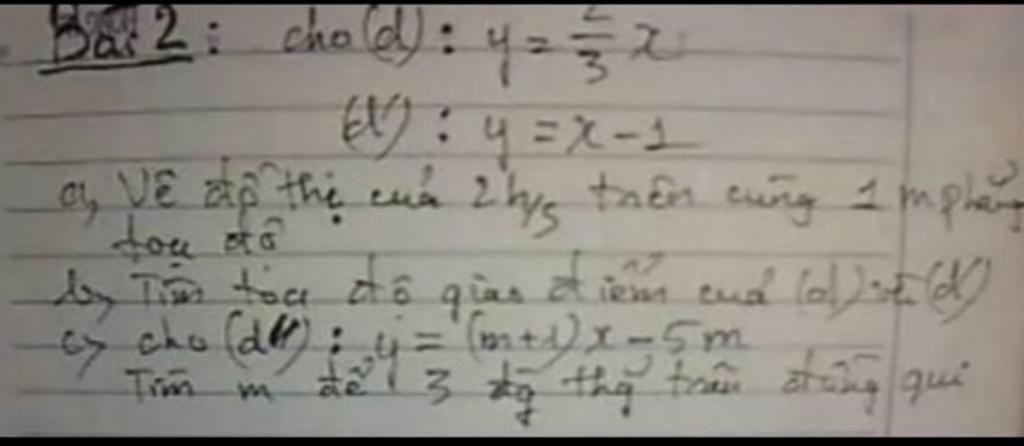 Bài 2: cho (d): y = 2/3 x
(d'): y = x - 1
a, Vẽ đồ thị của 2 h/s trên cùng 1 m phẳng
toạ độ
b, Tìm toạ độ giao điểm của (d) và (d')
c, cho (d"): y = (m+1)x - 5m
Tìm m để 3 đg thẳg trên đồng qui